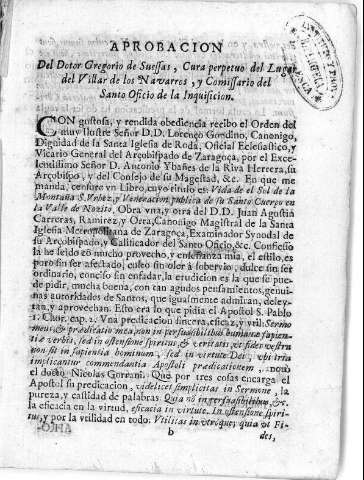 APROBACION
Del Dotor Gregorio de Suelsas, Cura perpetuo del Lugar
del Villar de los Navarros, y Comissario del
Santo Oficio de la Inquisicion.
CON gustosa, y rendida obediencia recibo el Orden del
muy Ilustre Señor D.D. Lorenço Gondino, Canonigo,
Dignidad de la Santa Iglesia de Roda, Oficial Eclesiastico, y
Vicario General del Arçobispado de Zaragoça, por el Exce-
lentissimo Señor D. Antonio Ybañes de la Riva Herrera, su
Arçobispo, y del Consejo de su Magestad, &c. En que me
manda, censure vn Libro, cuyo titulo es: Vida de el Sol de la
Montaña S. Vrbez, y Veneracion publica de su Santo Cuerpo en
la Valle de Nozito, Obra vna, y otra del D.D. Juan Agustin
Carreras, Ramirez, y Orta, Canonigo Magistral de la Santa
Iglesia Metropolitana de Zaragoça, Examinador Synodal de
su Arçobispado, y Calificador del Santo Oficio, &c. Confiesso
la he leìdo co mucho provecho, y enseñanza mia, el estilo, es
puro sin ser afectado, culto sin oler à sobervio, dulce sin ser
ordinario, conciso sin enfadar, la erudicion es la que se pue-
de pidir, mucha buena, con tan agudos pensamientos, genui-
nas autoridades de Santos, que igualmente admiran, deley-
tan, y aprovechan. Esto era lo que pidia el Apostol S. Pablo
1. Chor. cap. 2. Vna predicacion sincera, eficaz, y vtil: Sermo
meus, & prædicatio mea, non in persuasibilibus humanæ sapien-
tiæ verbis, sed in ostensione spiritus, & veritatis, vt fides vestra
non sit in sapientia hominum, sed in virtute Dei, vbi tria
implicantur commendantia Apostoli prædicationem,
el docto Nicolas Gorrani. Que por tres cosas encarga el
Apostol su predicacion, videlicet simplicitas in Sermone, la
pureza, y castidad de palabras. Quia nõ in persuasibilibus, &c.
la eficacia en la virtud, eficacia in virtute. In ostensione spiri-
tus, y por la vtilidad en todo. Vtilitas in vtroque; quia vt Fi-
b
des,